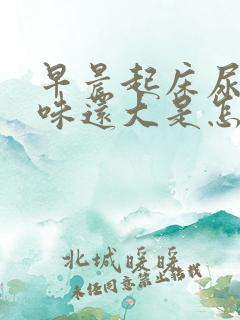 早晨起床尿
味還大是怎
北城暖暖
未经同意禁止转载